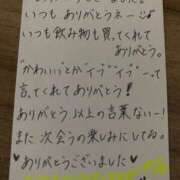 いつも ありがとうネー
いつも飲み物も買ってくれて
ありがとう。
"かわいい"とか"イブ""イブ"ーって
言ってくれてありがとう!
ありがとう以上の言葉ないー!
また 次会うの楽しみにしてるね。
♥ありがとうございました♥